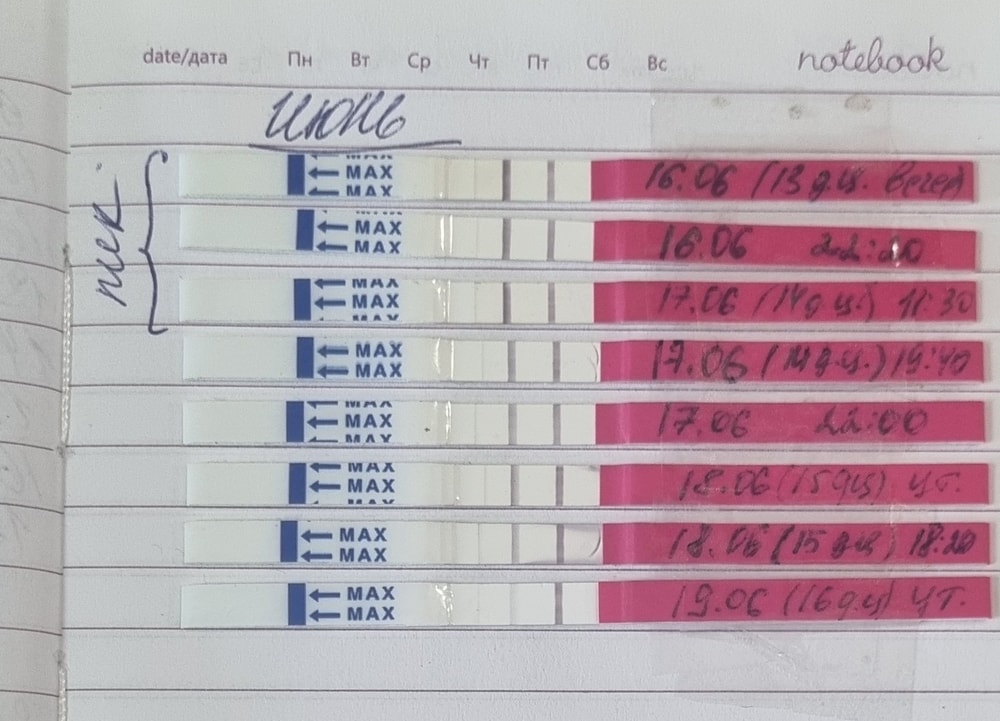 date/дата Пн Вт Ср Чт Пт Сб Вс notebook
июнь
пик
MAX MAX MAX 16.06 (13 д.ц. вечер)
MAX MAX MAX 16.06 22:20
MAX MAX MAX 17.06 (14 д.ц.) 11:30
MAX MAX 17.06 (14 д.ц.) 19:40
MAX MAX MAX 17.06 22:00
MAX MAX MAX 18.06 (15 дц) ут.
MAX MAX 18.06 (15 дц) 18:20
MAX MAX 19.06 (16 д.ц) ут.